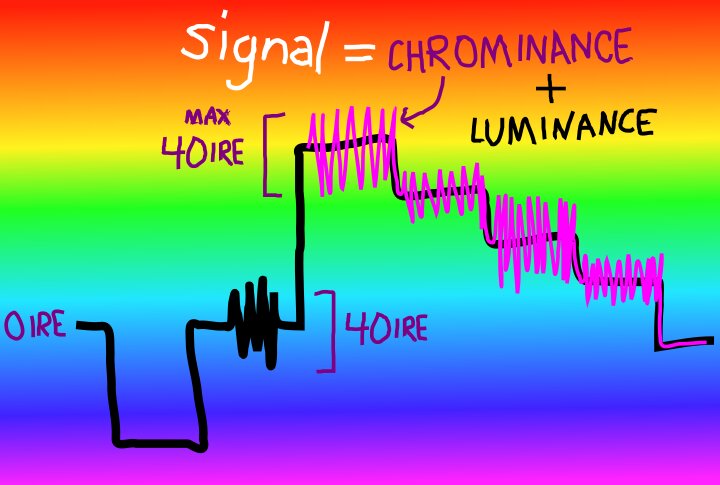 signal = CHROMINANCE
+
LUMINANCE
MAX
40IRE
0IRE
40IRE